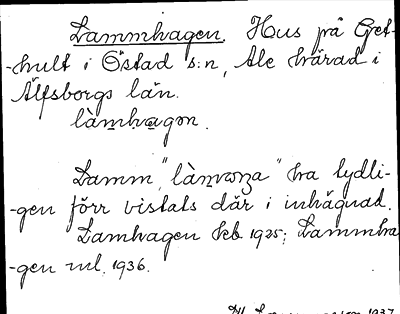 Lammhagen. Hus på Gret-
-hult i Östad s:n, Ale härad i
Älfsborgs län.
làmhagon.
Lamm, "làm" ha tydli-
-gen förr vistats där i inhägnad.
Lamhagen kb. 1925; Lammha-
-gen ml. 1936.
1937